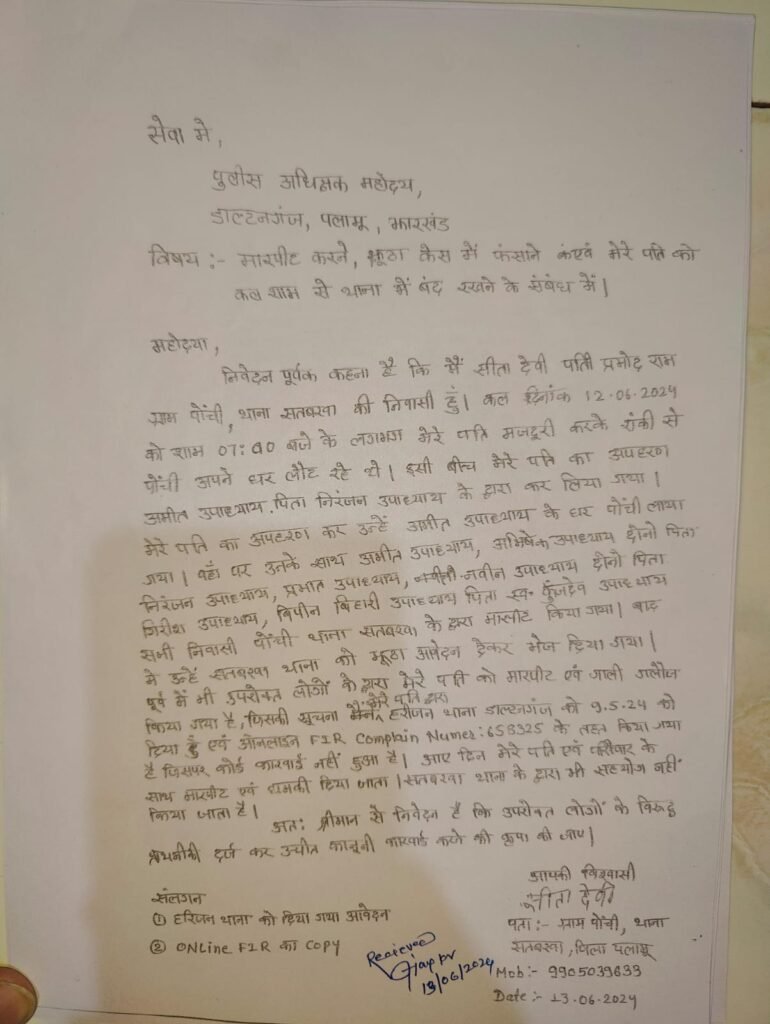 सेवा मे,
पुलीस अधिक्षक महोदय,
डाल्टनगंज, पलामू, झारखंड
विषय :- मारपीट करने, झूठा केस में फंसाने एवं मेरे पति को
कल शाम से थाना में बंद रखने के संबंध में।
महोदया,
निवेदन पूर्वक कहना है कि मैं सीता देवी पति प्रमोद राम
ग्राम पोंची, थाना सतबरवा की निवासी हुँ। कल दिनांक 12.06.2024
को शाम 07:00 बजे के लगभग मेरे पति मजदूरी करके रांकी से
पोंची अपने घर लौट रहे थे। इसी बीच मेरे पति का अपहरण
अमीत उपाध्याय पिता निरंजन उपाध्याय के द्वारा कर लिया गया।
मेरे पति का अपहरण कर उन्हें अमीत उपाध्याय के घर पोंची लाया
गया। वहाँ पर उनके साथ अमीत उपाध्याय, अभिषेक उपाध्याय दोनो पिता
निरंजन उपाध्याय, प्रभात उपाध्याय, नवीन उपाध्याय दोनो पिता
गिरीश उपाध्याय, बिपीन बिहारी उपाध्याय पिता स्व. कुंजदेव उपाध्याय
सभी निवासी पोंची थाना सतबरवा के द्वारा मारपीट किया गया। बाद
मे उन्हें सतबरवा थाना को झूठा आवेदन देकर भेज दिया गया।
पूर्व में भी उपरोक्त लोगों के द्वारा मेरे पति को मारपीट एवं गाली गलौज
किया गया है, जिसकी सूचना मेरे पति द्वारा हरिजन थाना डाल्टनगंज को 9.5.24 को
दिया हुँ एवं ऑनलाइन FIR Complain Numer: 658325 के तहत किया गया
है जिसपर कोई कारवाई नहीं हुआ है। आए दिन मेरे पति एवं परिवार के
साथ मारपीट एवं धमकी दिया जाता। सतबरवा थाना के द्वारा भी सहयोग नहीं
किया जाता है।
अतः श्रीमान से निवेदन है कि उपरोक्त लोगों के विरूद्ध
प्राथमीकी दर्ज कर उचीत कानूनी कारवाई करने की कृपा की जाए।
आपकी विश्वासी
सीता देवी
पता :- ग्राम पोंची, थाना
सतबरवा, जिला पलामू
Mob:- 9905039633
Date :- 13.06.2024
संलगन
① हरिजन थाना को दिया गया आवेदन
② ONLine FIR का COPY
Recieved
13/06/2024